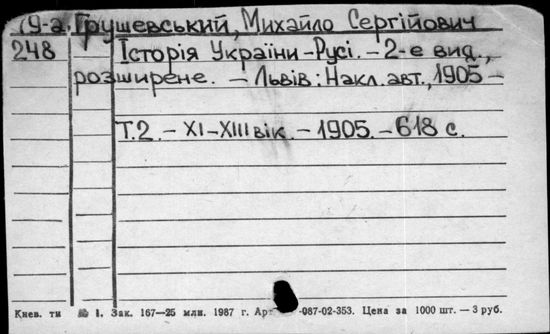 19-а. Грушевський, Михайло Сергійович
248 Історія України-Русі. – 2-е вид.,
розширене. – Львів: Накл. авт., 1905 –
Т.2. – XI–XIII вік. – 1905. – 618 с.
Киев. ти № 1. Зак. 167—25 млн. 1987 г. Арт -087-02-353. Цена за 1000 шт. — 3 руб.